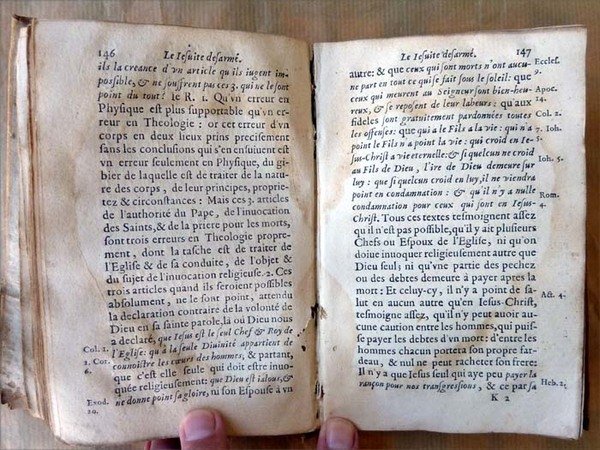 146
Le Iesuite desarmé.
ils la creance d'vn article qu'ils iugent im-
possible, & ne souffrent pas ces 3. qui ne le sont
point du tout? le R. 1. Qu'vn erreur en
Physique est plus supportable qu'vn er-
reur en Theologie: or cet erreur d'vn
corps en deux lieux prins precisement
sans les conclusions qui s'en ensuiuent est
vn erreur seulement en Physique, du gi-
bier de laquelle est de traiter de la natu-
re des corps, de leur principes, proprie-
tez & circonstances: Mais ces 3. articles
de l'authorité du Pape, de l'inuocation
des Saints, & de la priere pour les morts,
sont trois erreurs en Theologie propre-
ment, dont la tasche est de traiter de
l'Eglise & de sa conduite, de l'objet &
du sujet de l'inuocation religieuse. 2. Ces
trois articles quand ils seroient possibles
absolument, ne le sont point, attendu
la declaration contraire de la volonté de
Dieu en sa sainte parole, là où Dieu nous
a declaré, que Iesus est le seul Chef & Roy de
Col. 1. l'Eglise: qu'à la seule Diuinité appartient de
2. Cor. connoistre les cœurs des hommes, & partant,
6. que c'est elle seule qui doit estre inuo-
quée religieusement: que Dieu est ialoux, &
Exod. ne donne point sa gloire, ni son Espouse à vn
20.
Le Iesuite desarmé.
147
autre: & que ceux qui sont morts n'ont aucu- Eccles.
ne part en tout ce qui se fait sous le soleil: que 9.
ceux qui meurent au Seigneur sont bien-heu- Apoc.
reux, & se reposent de leur labeurs: qu'aux 14.
fideles sont gratuitement pardonnées toutes Col. 2.
les offenses: que qui a le Fils a la vie: qui n'a 1. Ioh.
point le Fils n'a point la vie: qui croid en Ie- 5.
sus-Christ a vie eternelle: & si quelcun ne croid Ioh. 5.
au Fils de Dieu, l'ire de Dieu demeure sur
luy: que si quelcun croid en luy, il ne viendra
point en condamnation: & qu'il n'y a nulle Rom.
condamnation pour ceux qui sont en Iesus- 4.
Christ. Tous ces textes tesmoignent assez
qu'il n'est pas possible, qu'il y ait plusieurs
Chefs ou Espoux de l'Eglise, ni qu'on
doiue inuoquer religieusement autre que
Dieu seul; ni qu'vne partie des pechez
ou des debtes demeure à payer apres la
mort: Et celuy-cy, il n'y a point de sa- Act. 4.
lut en aucun autre qu'en Iesus-Christ,
tesmoigne assez, qu'il n'y peut auoir au-
cune caution entre les hommes, qui puis-
se payer les debtes d'vn mort: d'entre les
hommes chacun portera son propre far-
deau, & nul ne peut racheter son frere:
Il n'y a que Iesus seul qui aye peu payer la
rançon pour nos transgressions, & ce par sa Heb. 2.
K 2